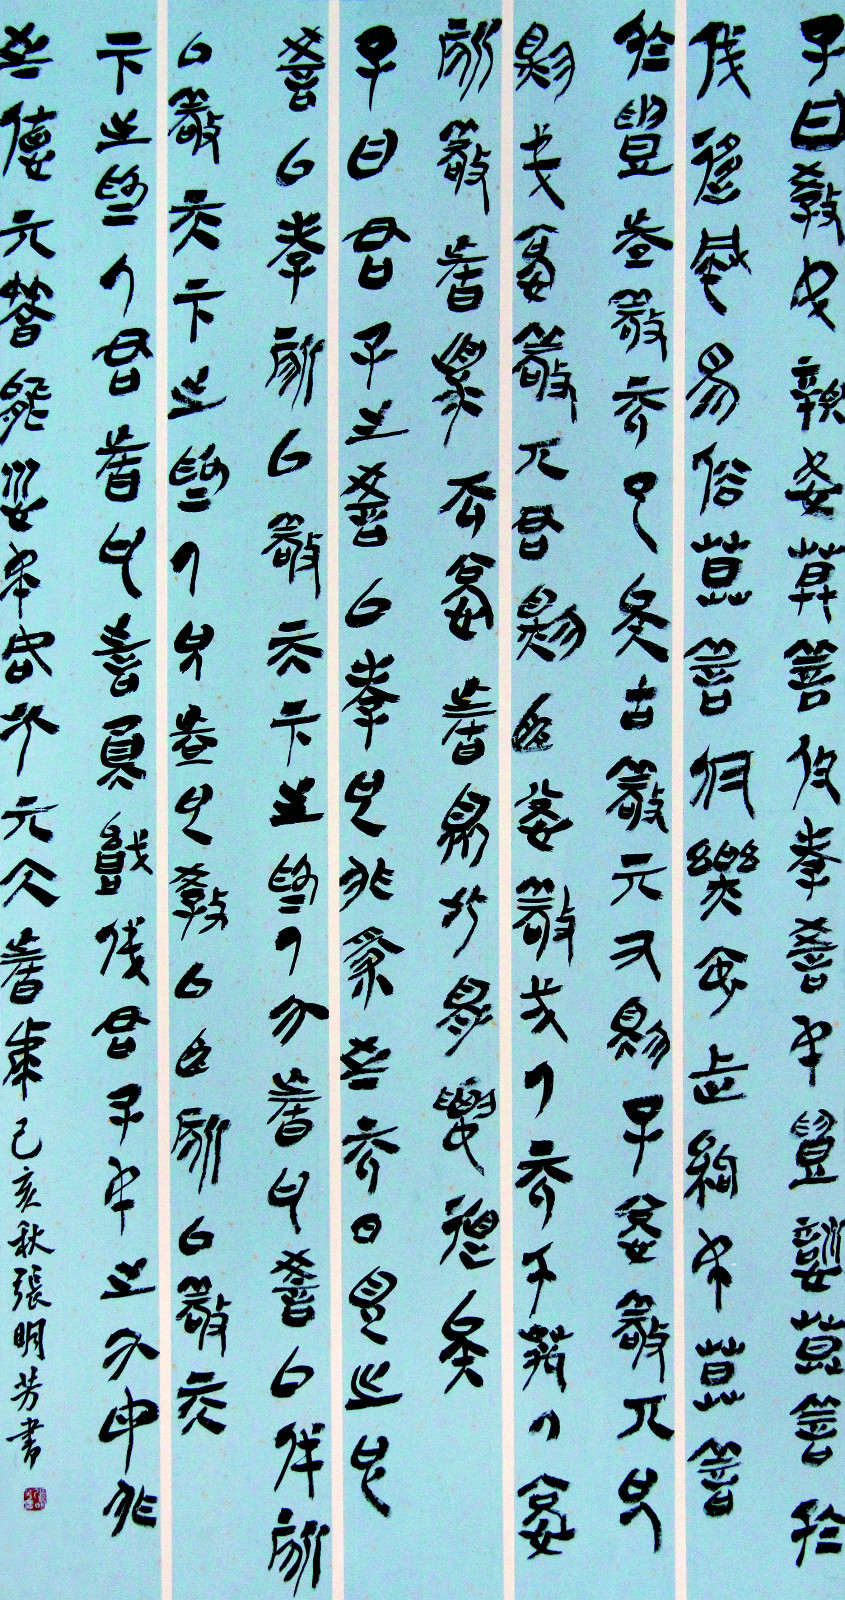 子曰教民親愛莫善於孝教民禮順莫善於
悌移風易俗莫善於樂安上治民莫善
於禮禮者敬而已矣故敬其父則子悅敬其兄
則弟悅敬其君則臣悅敬一人而千萬人悅
所敬者寡而悅者眾此之謂要道矣
子曰君子之教以孝也非家至而日見之也
教以孝所以敬天下之為人父者也教以悌所
以敬天下之為人兄者也教以臣所以敬天
下之為人君者也詩云愷悌君子民之父母非
至德其孰能順民如此其大者乎己亥秋張明芳書